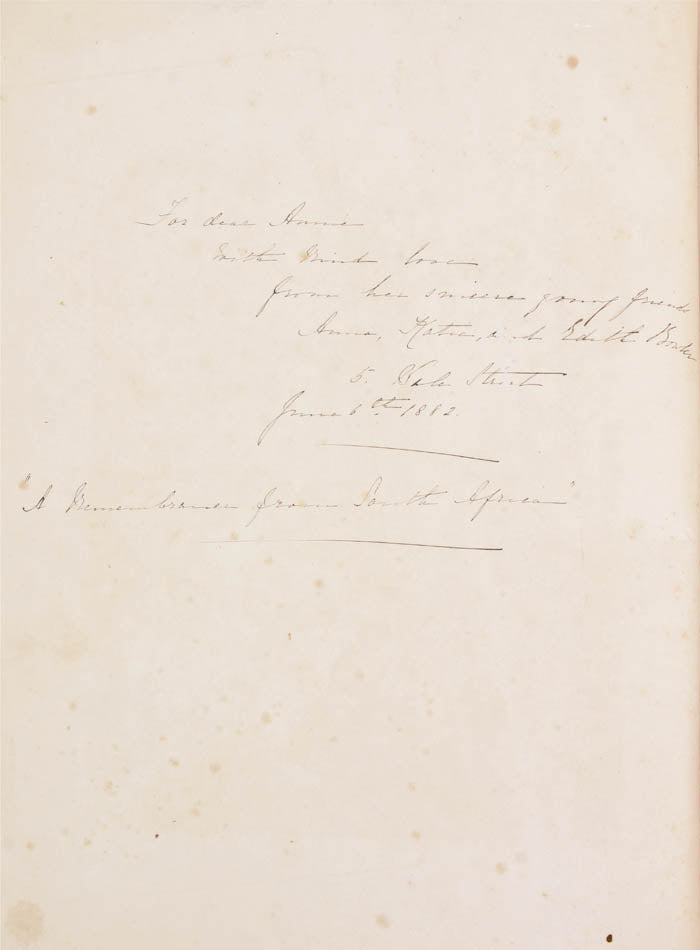 For dear Annie
With kind love
from her sincere young friends
Anna, Katie, and Edith
5. Wale Street
June 6th 1882.
"A Remembrance from South Africa"